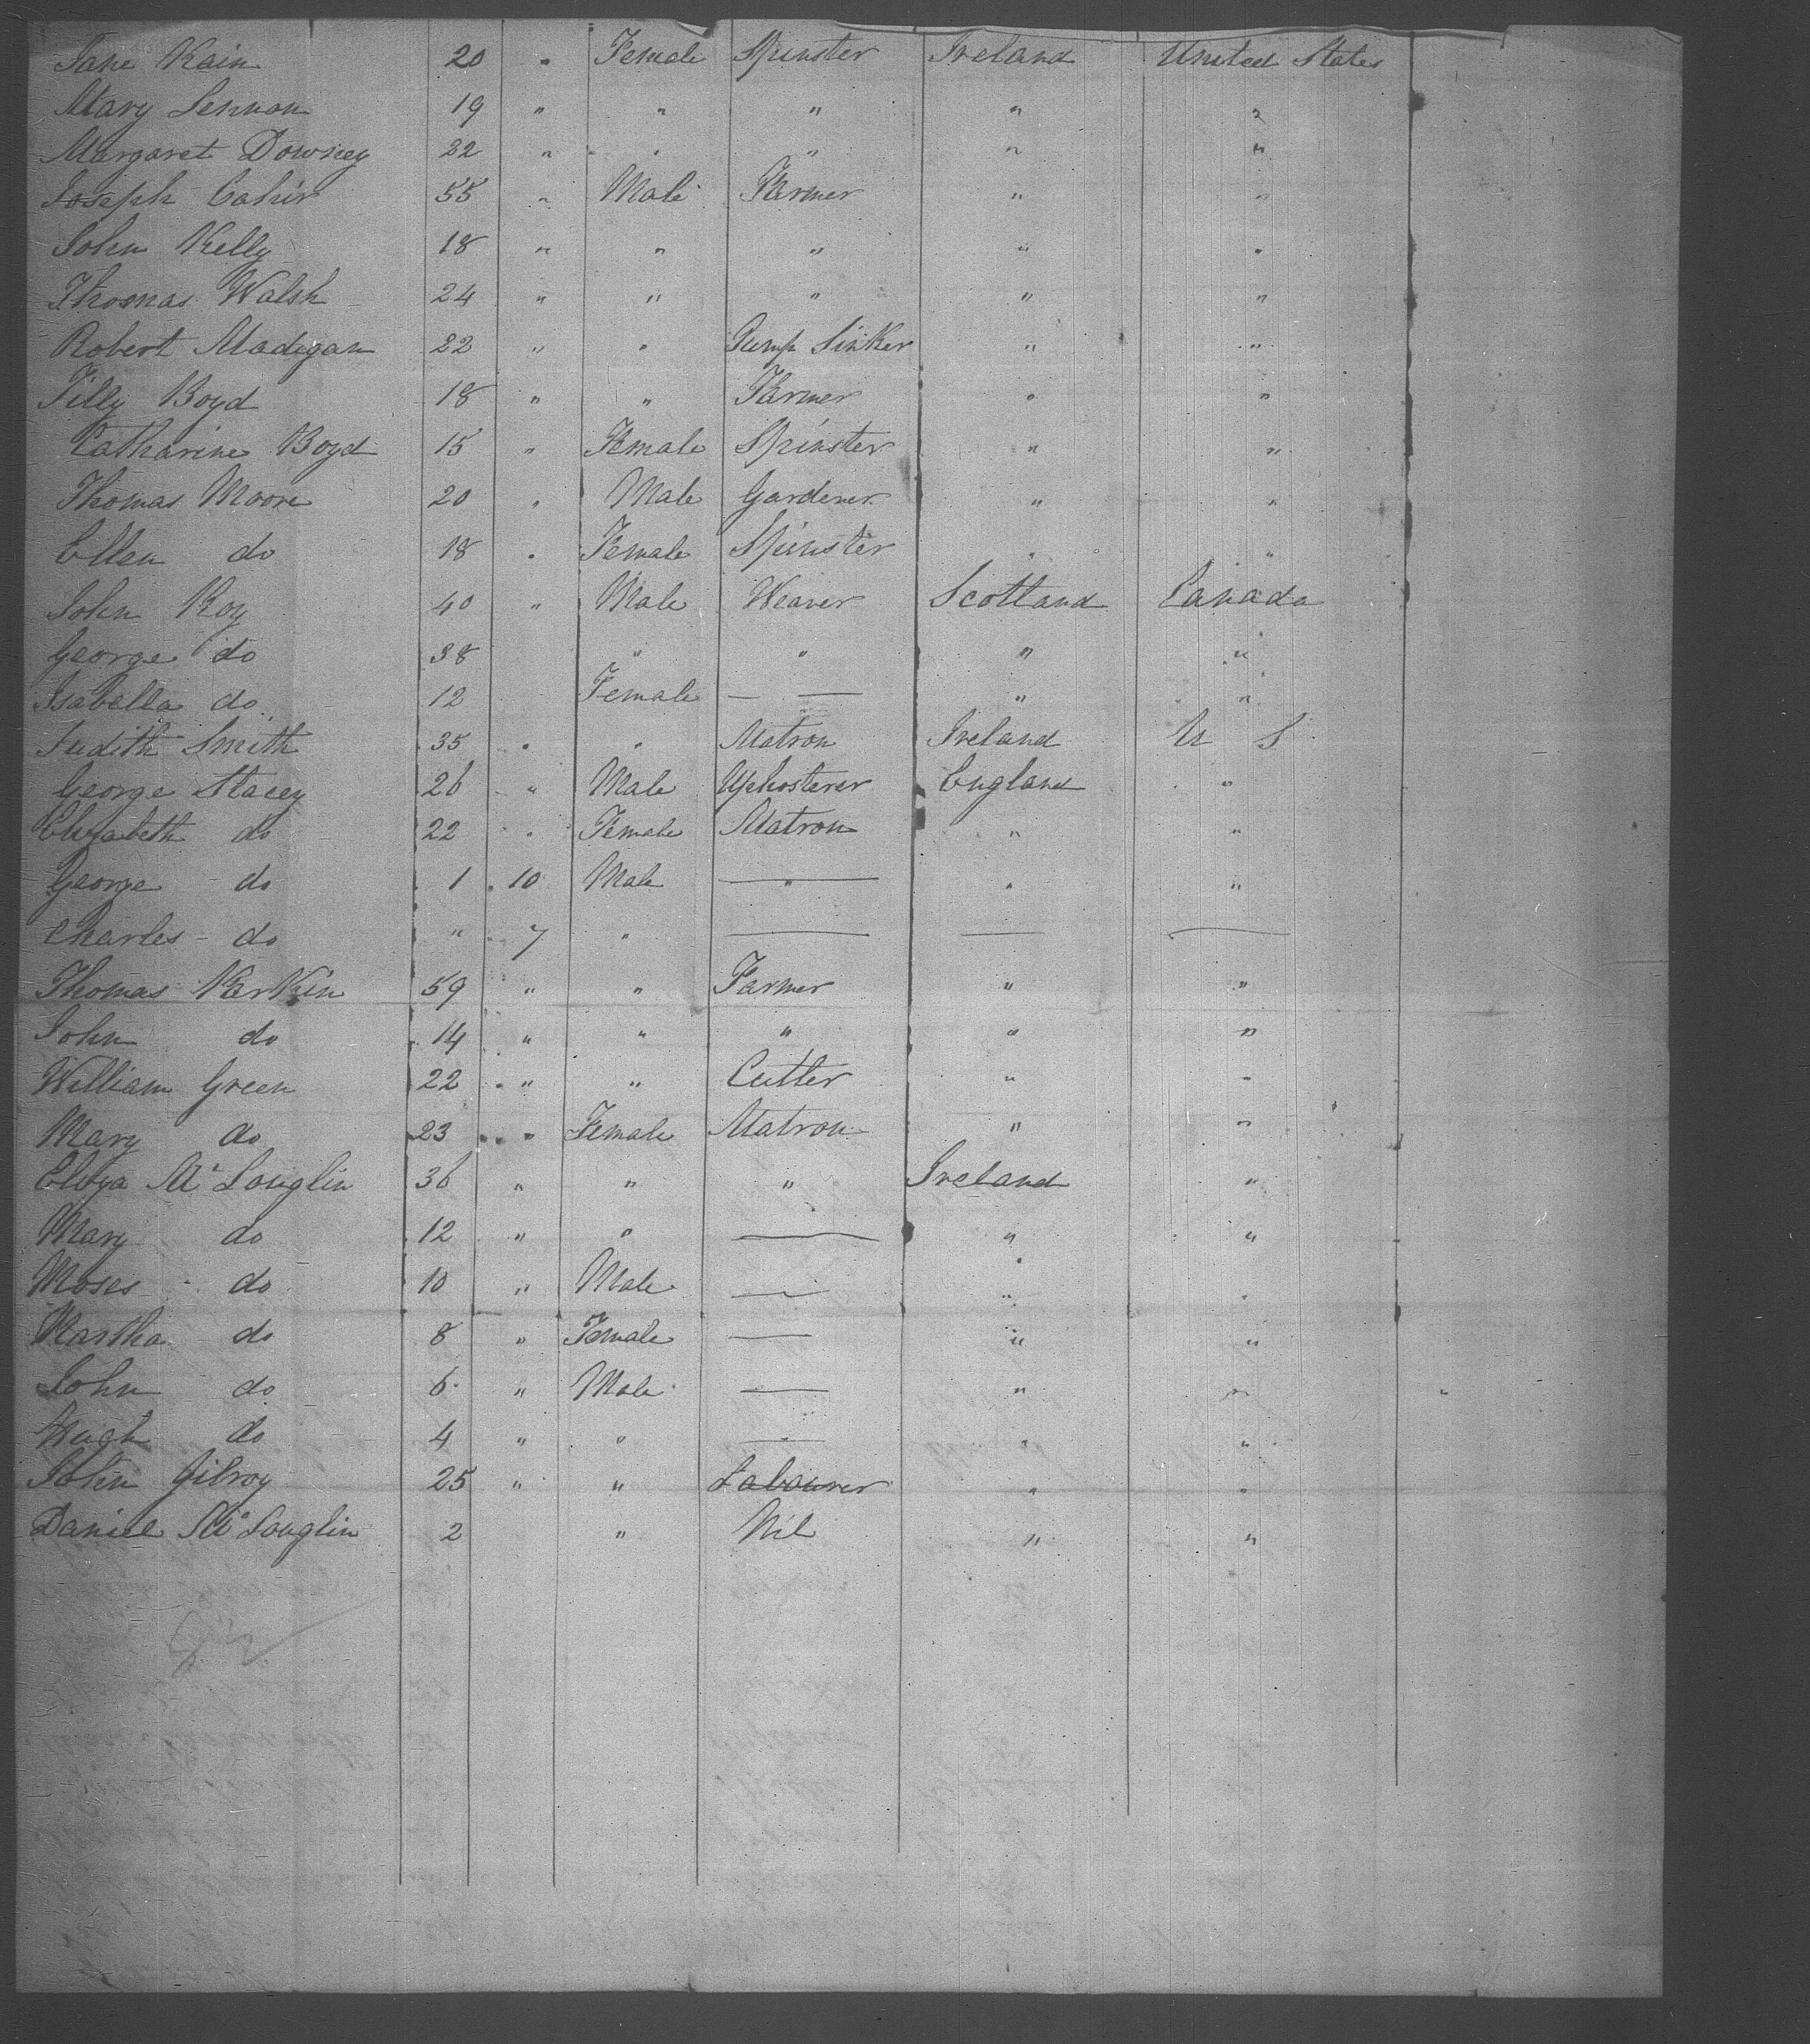 Jane Kain 20 " Female Spinster Ireland United States
Mary Lennon 19 " " " " "
Margaret Downey 22 " " " " "
Joseph Cahir 55 " Male Farmer " "
John Kelly 18 " " " " "
Thomas Walsh 24 " " " " "
Robert Madigan 22 " " Pump Sinker " "
Tilly Boyd 18 " " Farmer " "
Catharine Boyd 15 " Female Spinster " "
Thomas Moore 20 " Male Gardener " "
Ellen do 18 " Female Spinster " "
John Roy 40 " Male Weaver Scotland Canada
George do 38 " " " "
Isabella do 12 Female — — " "
Judith Smith 35 " " Matron Ireland U S
George Stacey 26 " Male Upholsterer England "
Elizabeth do 22 " Female Matron " "
George do 1 10 Male — " — " "
Charles do " 7 " — — —
Thomas Karkin 59 " " Farmer " "
John do 14 " " " " "
William Green 22 " " Cutler " "
Mary do 23 " Female Matron " "
Eliza McLouglin 36 " " " Ireland "
Mary do 12 " " — " "
Moses do 10 " Male — " "
Martha do 8 " Female — " "
John do 6 " Male — " "
Hugh do 4 " " — " "
John Gilroy 25 " " Labourer " "
Daniel McLouglin 2 " Nil " "